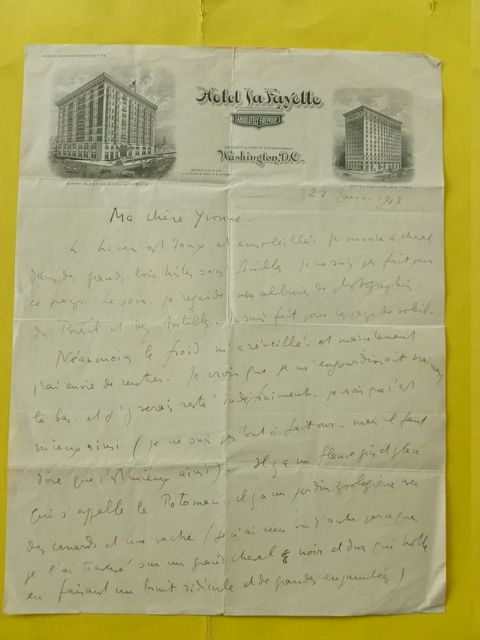 Hotel La Fayette
ABSOLUTELY FIREPROOF
Washington, D.C.
Janvier 1919
Ma chère Yvonne.
L'hiver est doux et ensoleillé. je monte à cheval
dans des grands bois tristes sans feuilles. je ne suis pas fait pour
ce pays. Le soir. je regarde mes albums de photographies
du Brésil et des Antilles. je suis fait pour les pays de soleil.
Néanmoins le froid m'a réveillé. et maintenant
j'ai envie de rentrer. Je crois que je m'engourdissait vraiment
là bas. et d'y serais resté indéfiniment. je crois que c'est
mieux ainsi (je ne suis pas tout à fait sur. mais il faut
dire que c'est mieux ainsi). Il y a un fleuve gris et glacé
qui s'appelle le Potomac. il y a un jardin zoologique avec
des canards et une vache (je n'ai rien vu d'autre parce que
je l'ai traversé sur un grand cheval noir et dur qui trotte
en faisant un bruit ridicule et de grandes enjambées)